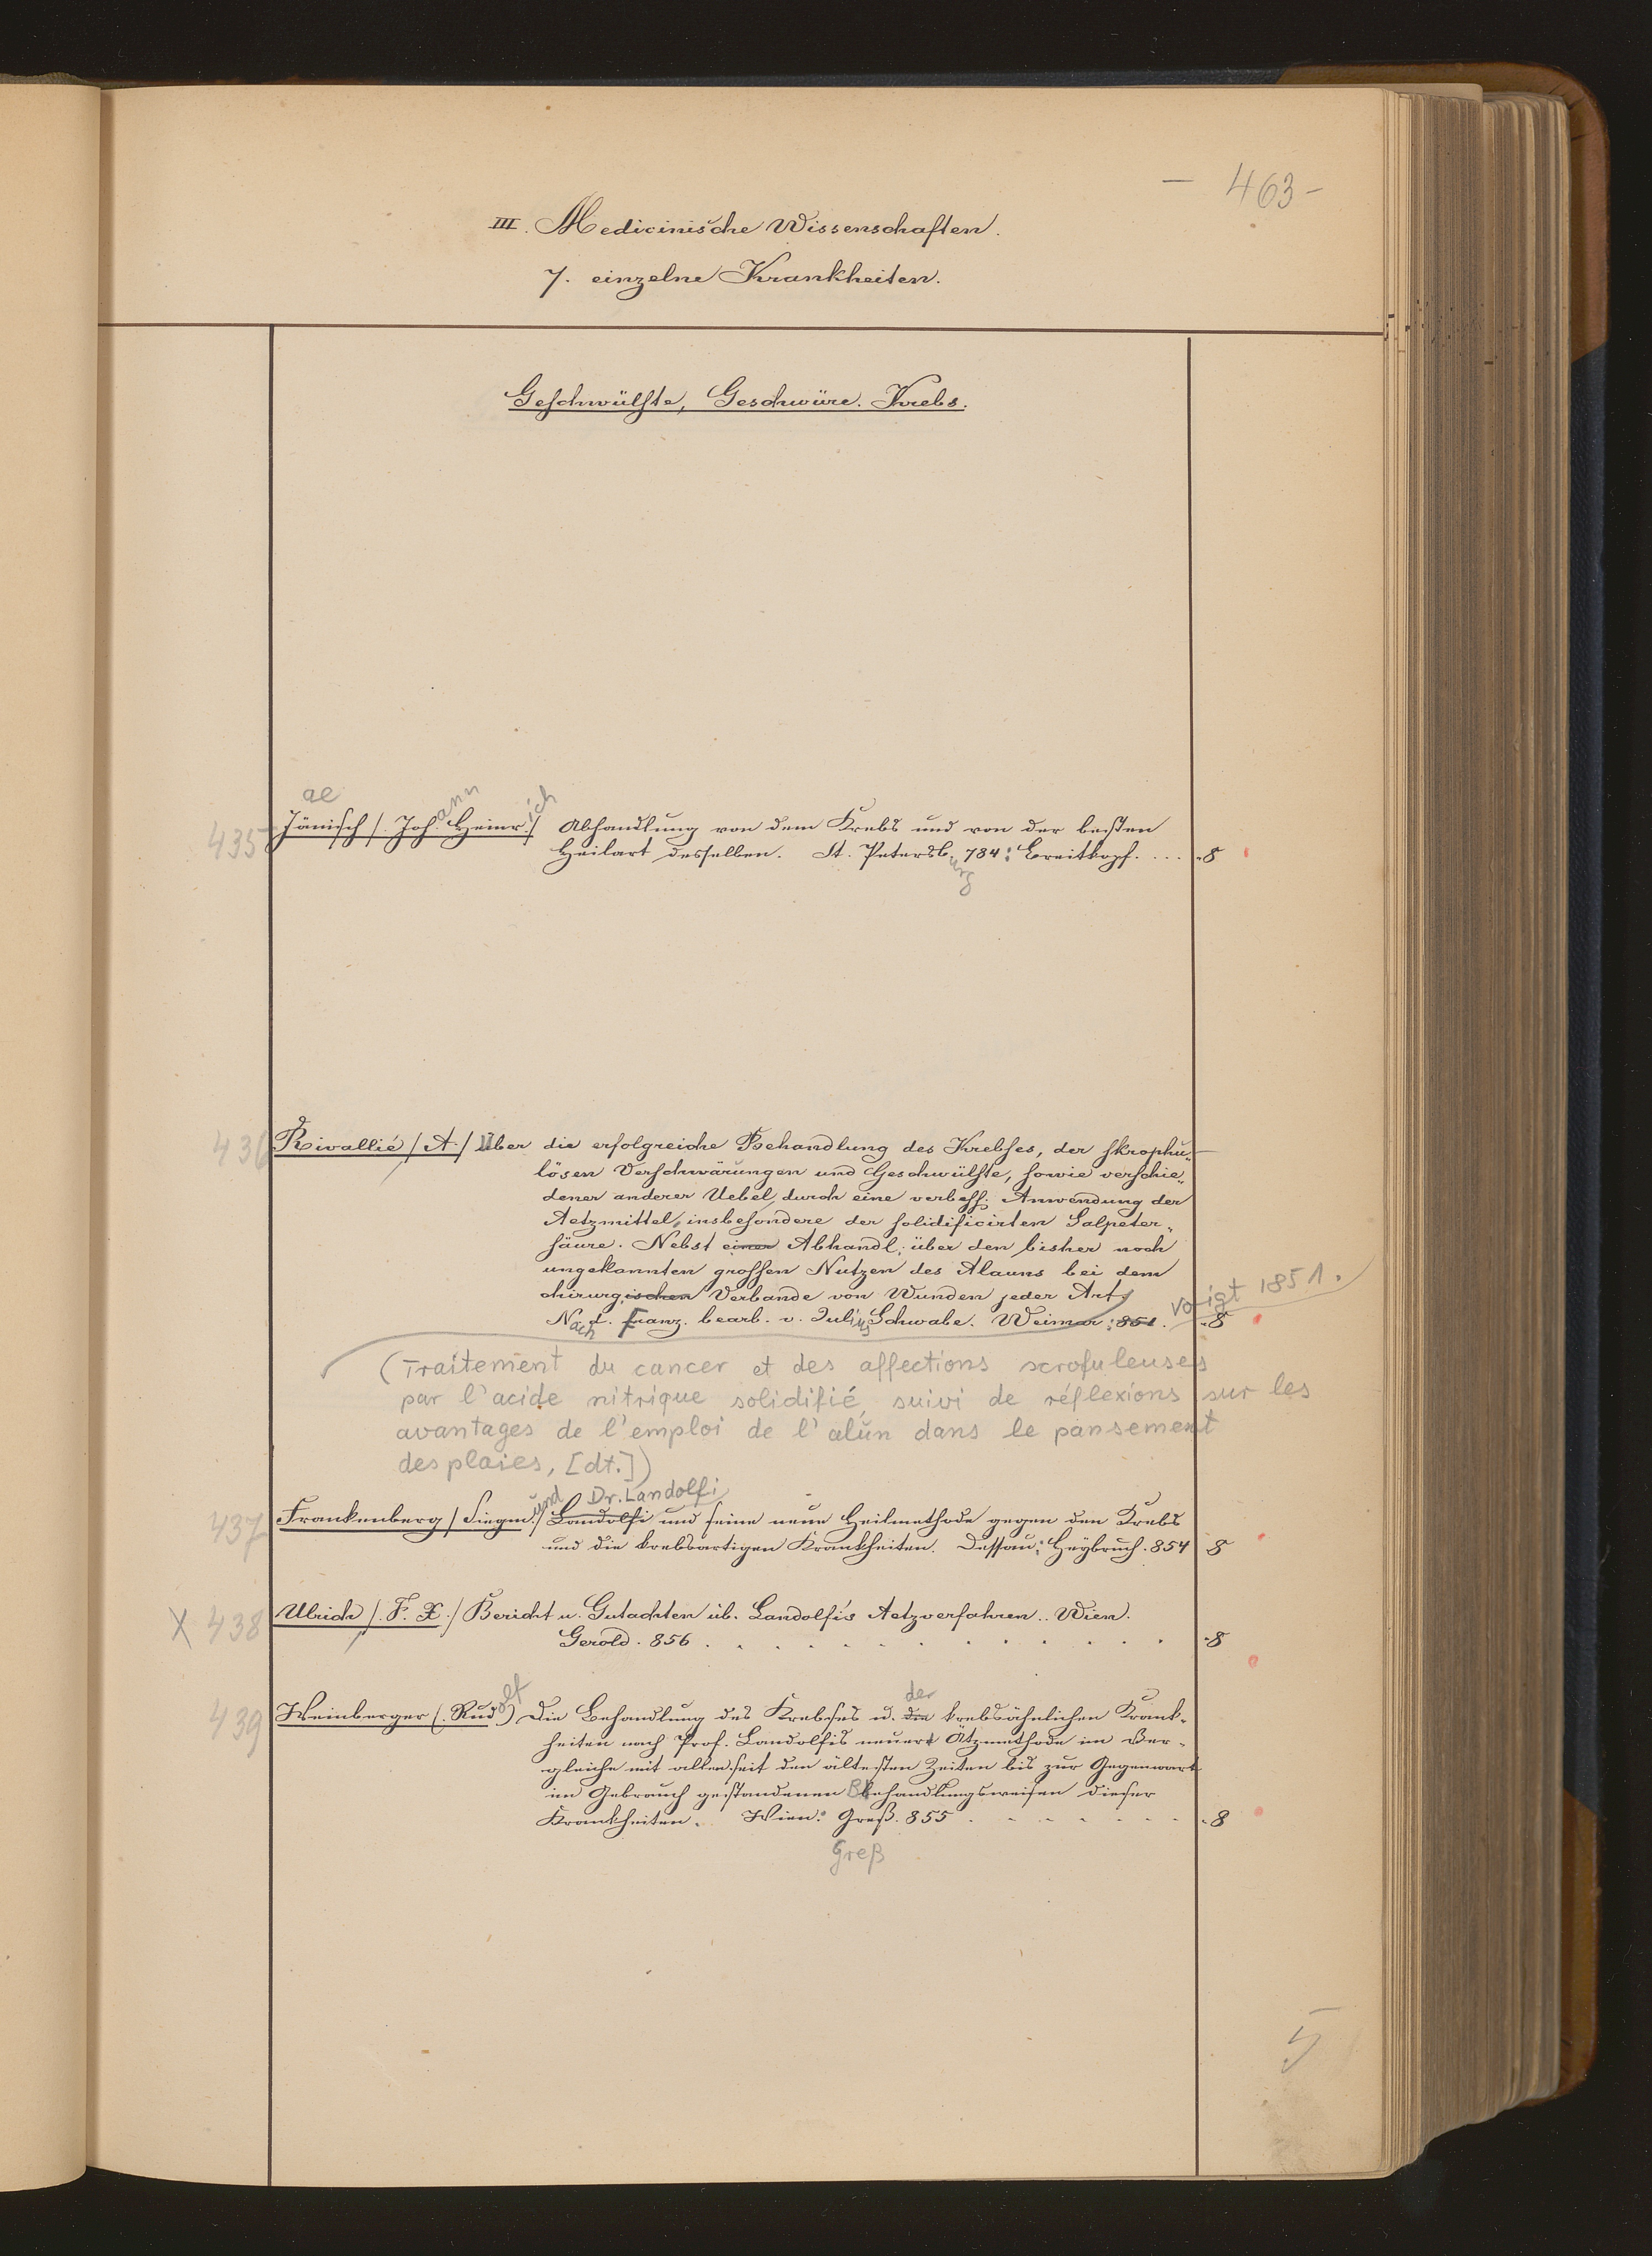 – 463 –
III. Medicinische Wissenschaften.
7. einzelne Krankheiten.
Geschwülste, Geschwüre. Krebs.
ae ann ich
435 Jänisch /. Joh. Heinr./ Abhandlung von dem Krebs und von der besten
Heilart desselben. St. Petersb. 784: Breitkopf. .... -8
urg
436 Rivallié /A./ Über die erfolgreiche Behandlung des Krebses, der skrophu„
lösen Verschwärungen und Geschwülste, sowie verschie„
dener anderer Uebel, durch eine verbess. Anwendung der
Aetzmittel, insbesondere der solidificirten Salpeter„
säure. Nebst einer Abhandl. über den bisher noch
ungekannten grossen Nutzen des Alauns bei dem
chirurgischen Verbande von Wunden jeder Art.
Voigt 1851.
Nach d. Franz. bearb. v. Julius Schwabe. Weimar: 851. -8
(Traitement du cancer et des affections scrofuleuses
par l'acide nitrique solidifié, suivi de réflexions sur les
avantages de l'emploi de l'alun dans le pansement
des plaies, [dt.])
und Dr. Landolfi
437 Frankenberg / Siegm./ Landolfi und seine neue Heilmethode gegen den Krebs
und die krebsartigen Krankheiten. Dessau: Heybruch. 854 8
X 438 Ulrich /. F. X./ Bericht u. Gutachten üb. Landolfi's Aetzverfahren.. Wien.
Gerold. 856 . . . . . . . . . . . . . -8
olf der
439 Weinberger (. Rud.) Die Behandlung des Krebses u. die krebsähnlichen Krank-
heiten nach Prof. Landolfis neuer Ätzmethode im Ver-
gleiche mit allen seit den ältesten Zeiten bis zur Gegenwart
im Gebrauch gestandenen Behandlungsweisen dieser
Krankheiten. Wien: Greß. 855 . . . . . . . -8
Greß
5